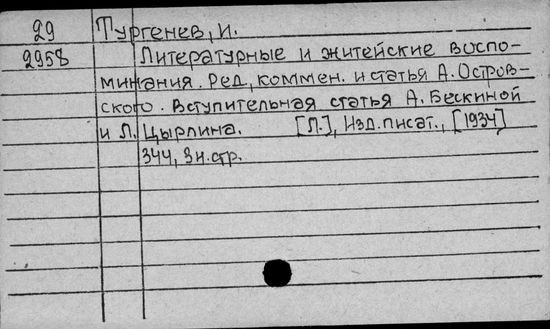 29 Тургенев, И.
2958 Литературные и житейские воспо-
минания. Ред., коммен. и статья А. Остров-
ского. Вступительная статья А. Бескиной
и Л. Цырлина. [Л.], Изд. писат., [1934]
344, 3 н. стр.